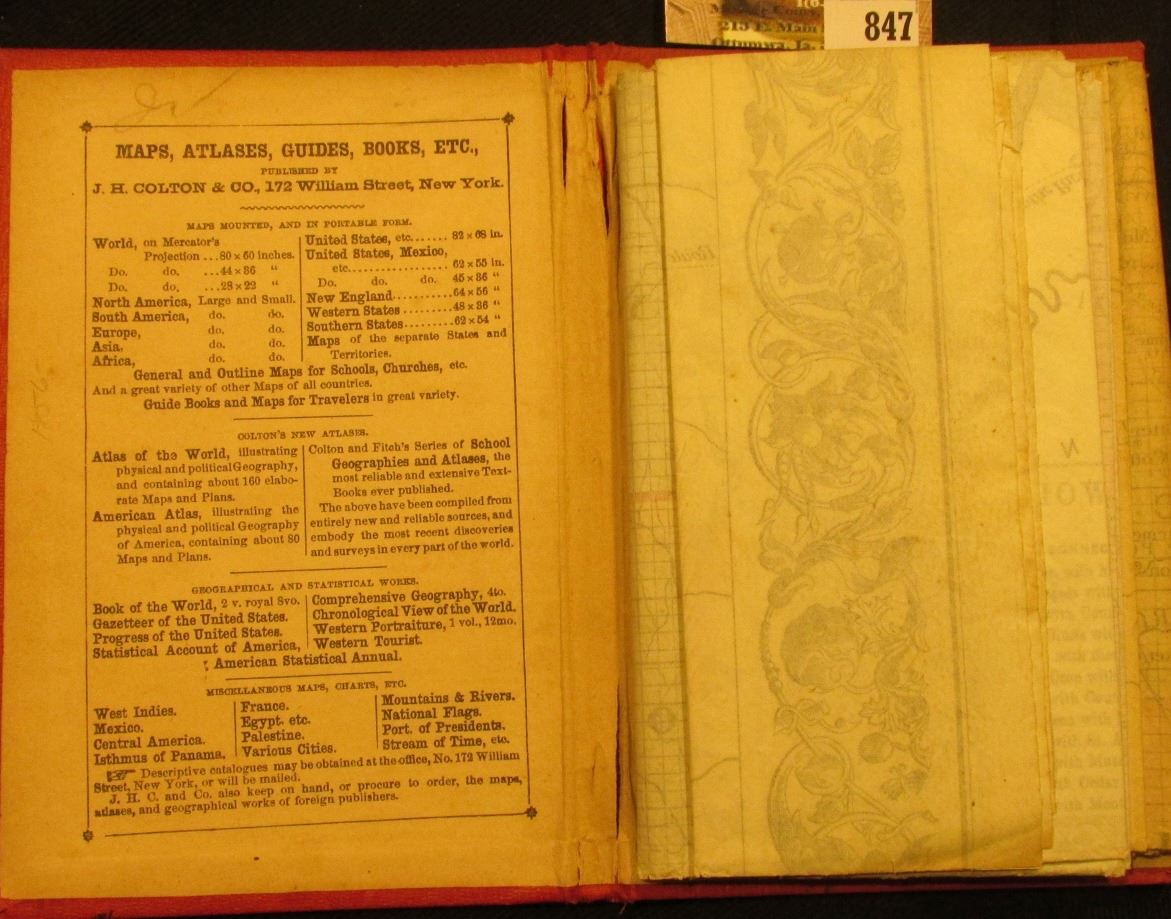 847
215 E. Main
Ottumwa, Ia.
MAPS, ATLASES, GUIDES, BOOKS, ETC.,
PUBLISHED BY
J. H. COLTON & CO., 172 William Street, New York.
MAPS MOUNTED, AND IN PORTABLE FORM.
World, on Mercator's
Projection ...80 x 60 inches.
Do. do. ...44 x 36 "
Do. do. ...28 x 22 "
North America, Large and Small.
South America, do. do.
Europe, do. do.
Asia, do. do.
Africa, do. do.
United States, etc....... 82 x 68 in.
United States, Mexico,
etc.................. 62 x 55 in.
Do. do. do. 45 x 36 "
New England.......... 64 x 56 "
Western States ......... 48 x 36 "
Southern States......... 62 x 54 "
Maps of the separate States and
Territories.
General and Outline Maps for Schools, Churches, etc.
And a great variety of other Maps of all countries.
Guide Books and Maps for Travelers in great variety.
COLTON'S NEW ATLASES.
Atlas of the World, illustrating
physical and political Geography,
and containing about 160 elabo-
rate Maps and Plans.
American Atlas, illustrating the
physical and political Geography
of America, containing about 80
Maps and Plans.
Colton and Fitch's Series of School
Geographies and Atlases, the
most reliable and extensive Text-
Books ever published.
The above have been compiled from
entirely new and reliable sources, and
embody the most recent discoveries
and surveys in every part of the world.
GEOGRAPHICAL AND STATISTICAL WORKS.
Book of the World, 2 v. royal 8vo.
Gazetteer of the United States.
Progress of the United States.
Statistical Account of America,
Comprehensive Geography, 4to.
Chronological View of the World.
Western Portraiture, 1 vol., 12mo.
Western Tourist.
American Statistical Annual.
MISCELLANEOUS MAPS, CHARTS, ETC.
West Indies.
Mexico.
Central America.
Isthmus of Panama.
France.
Egypt. etc.
Palestine.
Various Cities.
Mountains & Rivers.
National Flags.
Port. of Presidents.
Stream of Time, etc.
☞ Descriptive catalogues may be obtained at the office, No. 172 William
Street, New York, or will be mailed.
J. H. C. and Co. also keep on hand, or procure to order, the maps,
atlases, and geographical works of foreign publishers.